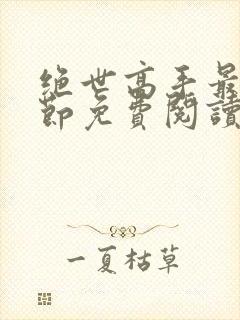 绝世高手最
節免費閱讀
一夏枯草